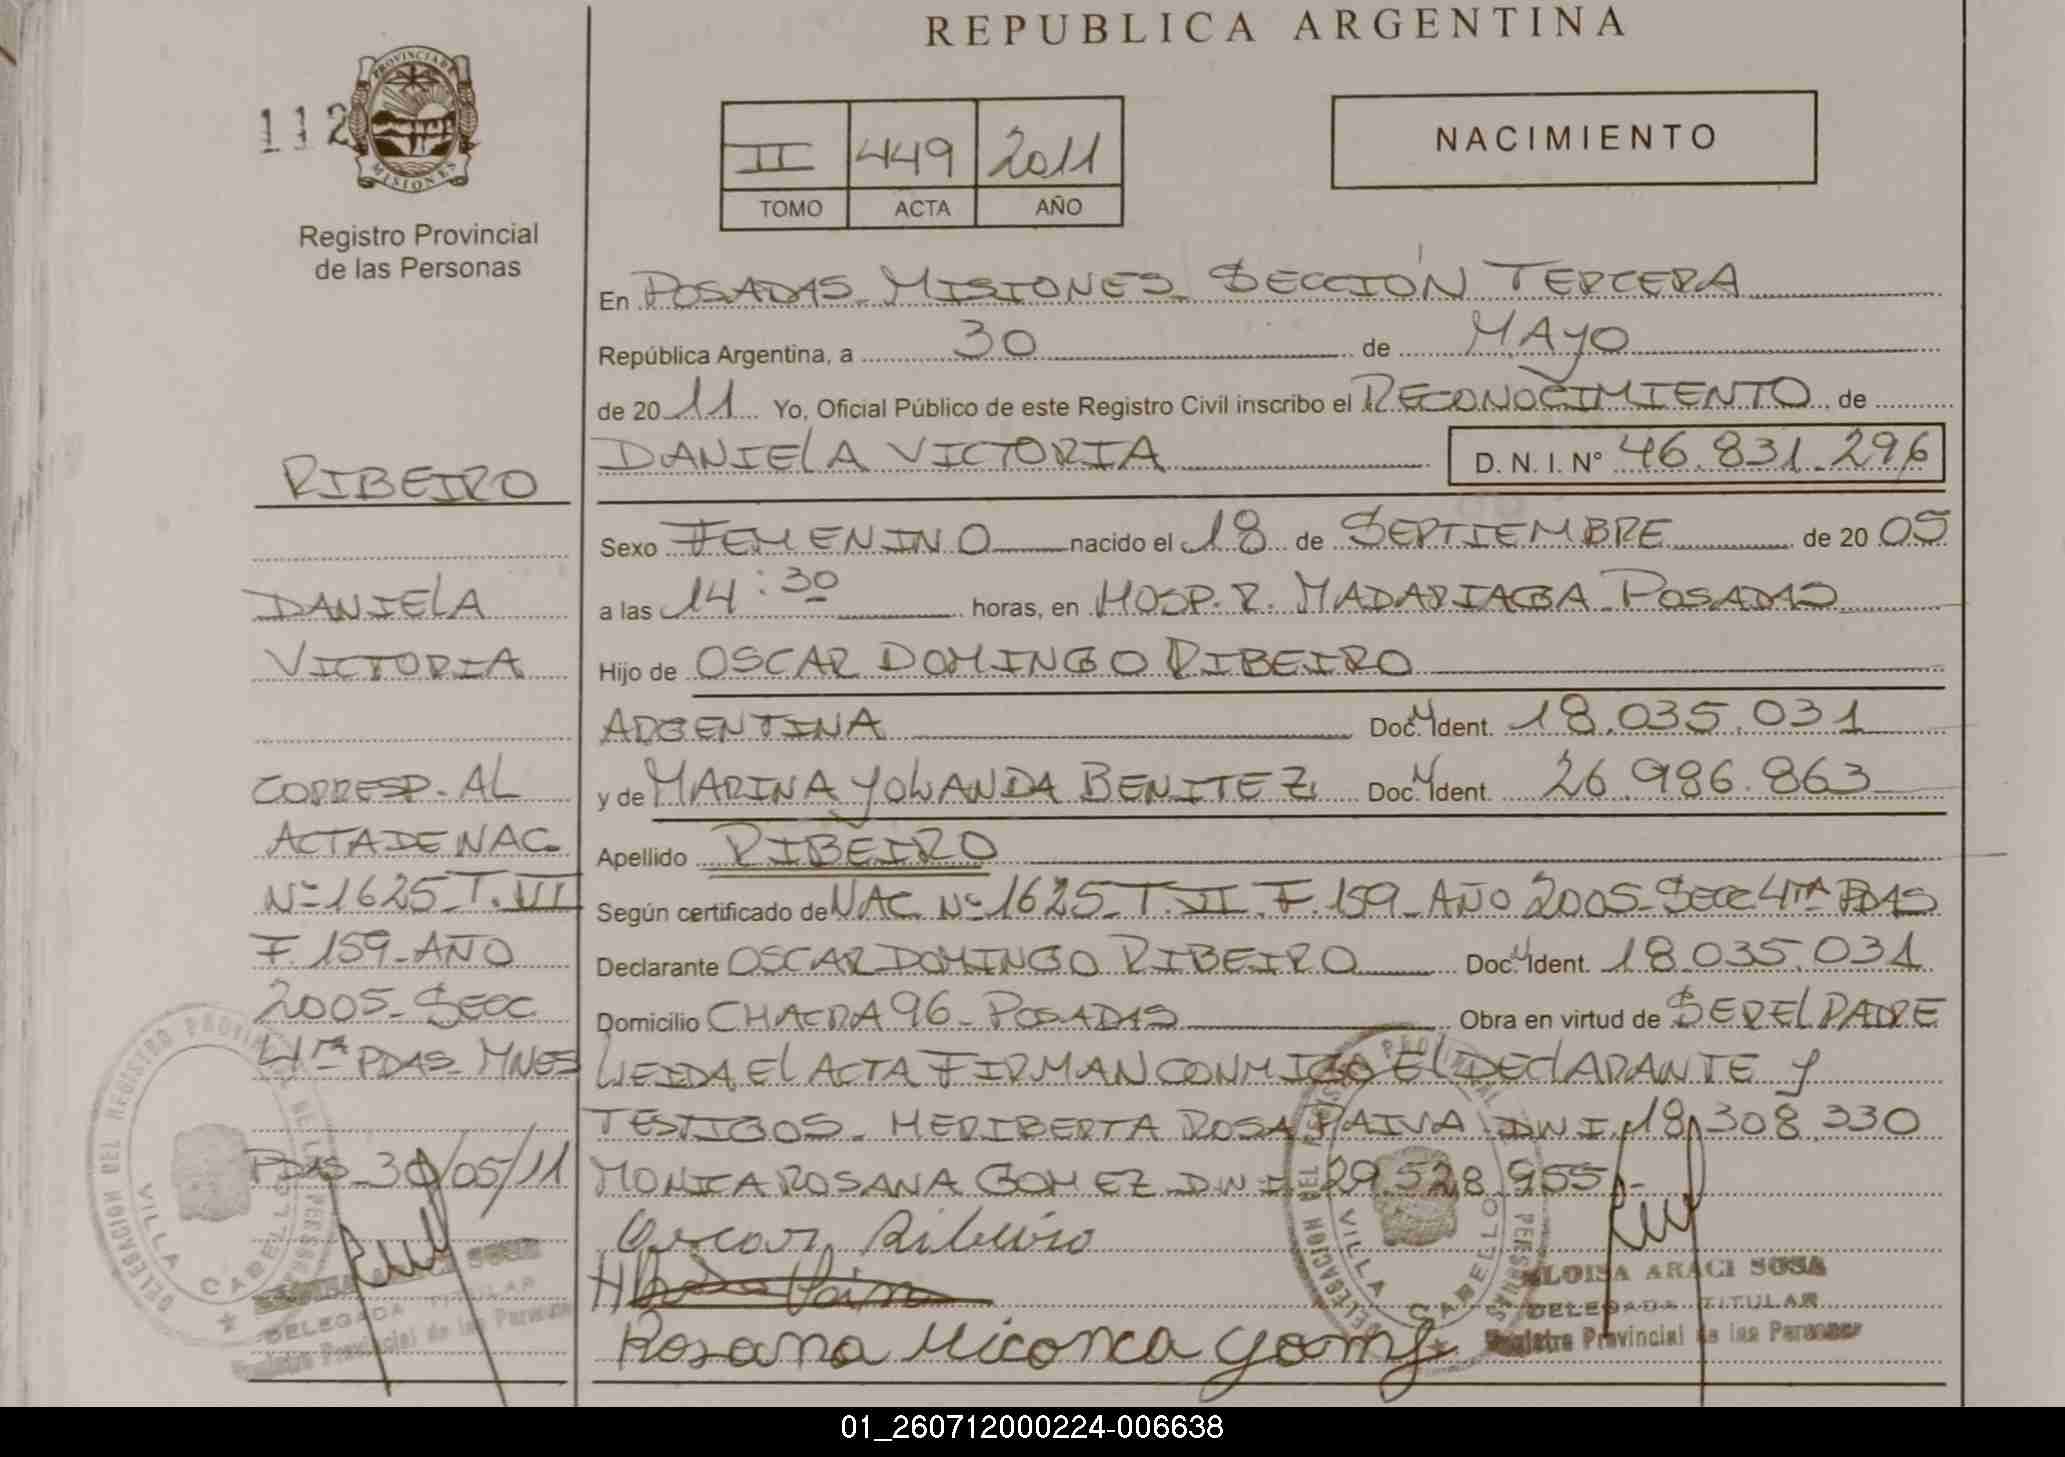 REPUBLICA ARGENTINA
112
PROVINCIA DE
MISIONES
Registro Provincial
de las Personas
II 449 2011
TOMO ACTA AÑO
NACIMIENTO
En POSADAS_MISIONES_SECCIÓN TERCERA
República Argentina, a 30 de MAYO
de 2011 Yo, Oficial Público de este Registro Civil inscribo el RECONOCIMIENTO de
DANIELA VICTORIA D. N. I. N° 46.831.296
Sexo FEMENINO nacido el 18 de SEPTIEMBRE de 2005
a las 14:30 horas, en HOSP. R. MADARIAGA_POSADAS
Hijo de OSCAR DOMINGO RIBEIRO
ARGENTINA Doc. Ident. 18.035.031
y de MARINA YOLANDA BENITEZ Doc. Ident. 26.986.863
Apellido RIBEIRO
Según certificado de NAC. Nº 1625_T. VI. F. 159_AÑO 2005_SECC 4TA PDAS
Declarante OSCAR DOMINGO RIBEIRO Doc. Ident. 18.035.031
Domicilio CHACRA 96_POSADAS Obra en virtud de SER EL PADRE
LEIDA EL ACTA FIRMAN CONMIGO EL DECLARANTE Y
TESTIGOS_HERIBERTA ROSA PAIVA D.N.I. 18.308.330
MONICA ROSANA GOMEZ D.N.I. 29.528.955.-
Oscar Ribeiro
Rosana Monica Gomez
RIBEIRO
DANIELA
VICTORIA
CORRESP. AL
ACTA DE NAC.
Nº 1625_T. VI
F. 159_AÑO
2005_SECC
4TA PDAS_MNES
PDAS_30/05/11
DELEGACION DEL REGISTRO PROVINCIAL DE LAS PERSONAS
VILLA CABELLO
SOSA
DELEGADA TITULAR
Registro Provincial de las Personas
DELEGACION DEL REGISTRO PROVINCIAL DE LAS PERSONAS
VILLA CABELLO
ELOISA ARACI SOSA
DELEGADA TITULAR
Registro Provincial de las Personas
01_260712000224-006638